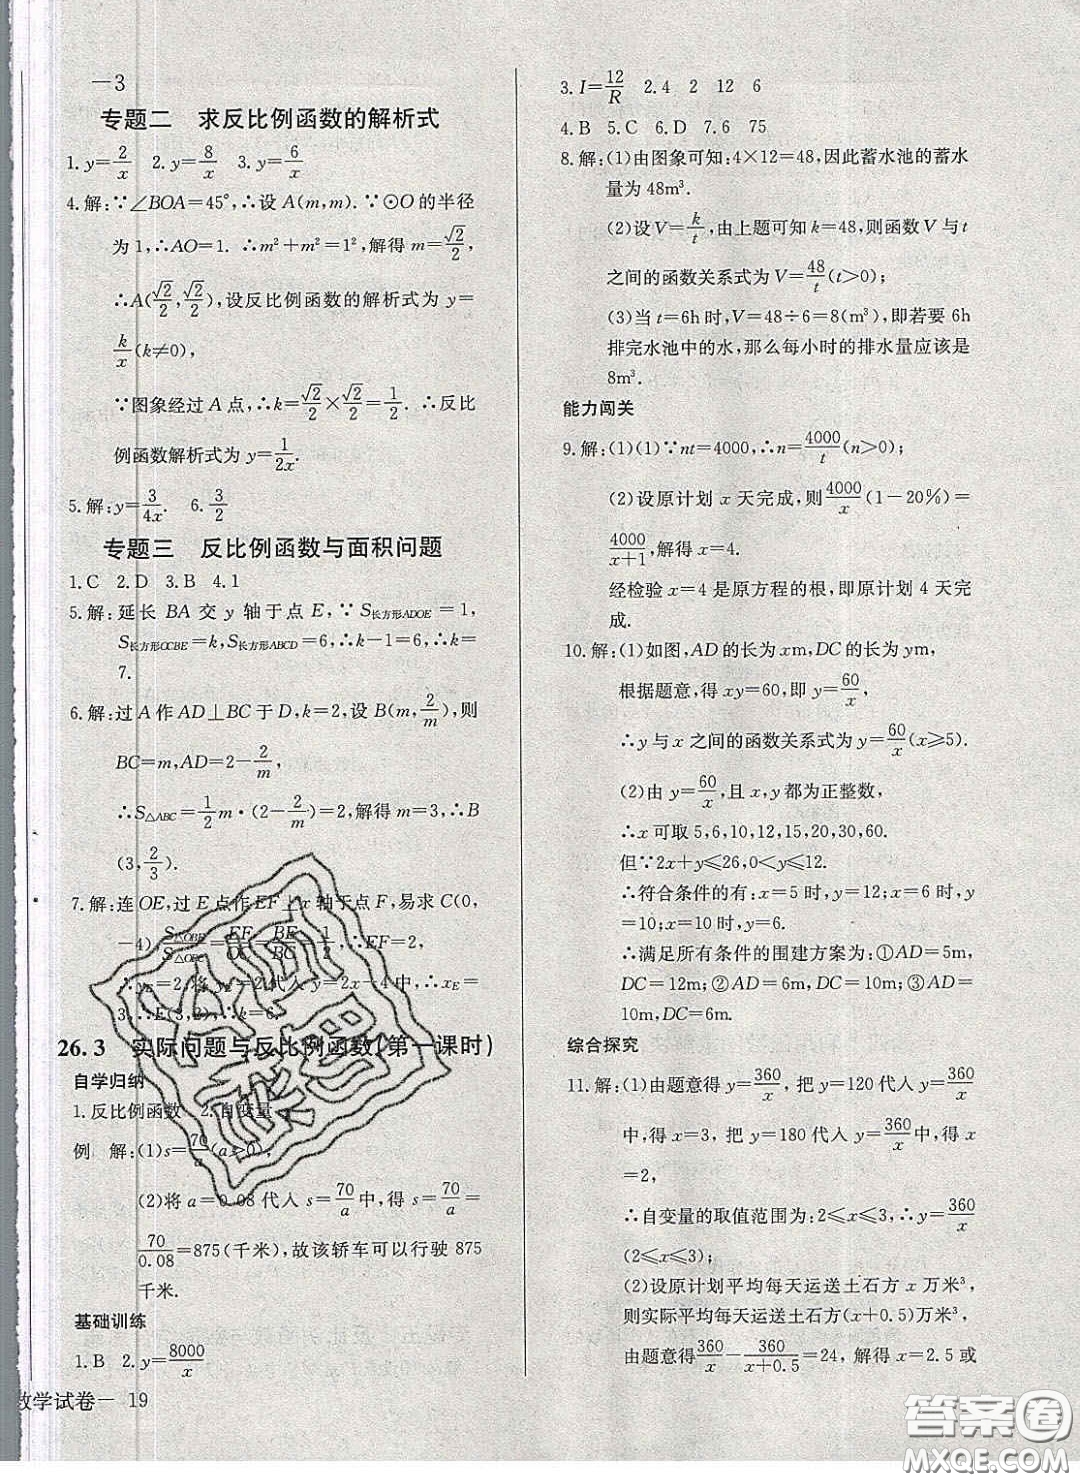 －3
专题二　求反比例函数的解析式
1.y=2/x　2.y=8/x　3.y=6/x
4.解:∵∠BOA=45°,∴设A(m,m).∵⊙O的半径
为1,∴AO=1.∴m²+m²=1²,解得m=√2/2,
∴A(√2/2,√2/2),设反比例函数的解析式为y=
k/x(k≠0),
∵图象经过A点,∴k=√2/2×√2/2=1/2.∴反比
例函数解析式为y=1/2x.
5.解:y=3/4x.　6.3/2
专题三　反比例函数与面积问题
1.C　2.D　3.B　4.1
5.解:延长BA交y轴于点E,∵S长方形ADOE=1,
S长方形OCBE=k,S长方形ABCD=6,∴k－1=6,∴k=
7.
6.解:过A作AD⊥BC于D,k=2,设B(m,2/m),则
BC=m,AD=2－2/m,
∴S△ABC=1/2m·(2－2/m)=2,解得m=3,∴B
(3,2/3).
7.解:连OE,过E点作EF⊥x轴于点F,易求C(0,
－4),S△OBE/S△OBC=EF/OC=BE/BC=1/2,∴EF=2,
∴yE=2,将yE=2代入y=2x－4中,∴xE=
3,∴E(3,2),∴k=6.
26.3　实际问题与反比例函数(第一课时)
自学归纳
1.反比例函数　2.自变量
例　解:(1)s=70/a(a>0),
(2)将a=0.08代人s=70/a中,得s=70/a=
70/0.08=875(千米),故该轿车可以行驶875
千米.
基础训练
1.B　2.y=8000/x
数学试卷－ 19
3.I=12/R　2.4　2　12　6
4.B　5.C　6.D　7.6　75
8.解:(1)由图象可知:4×12=48,因此蓄水池的蓄水
量为48m³.
(2)设V=k/t,由上题可知k=48,则函数V与t
之间的函数关系式为V=48/t(t>0);
(3)当t=6h时,V=48÷6=8(m³),即若要6h
排完水池中的水,那么每小时的排水量应该是
8m³.
能力闯关
9.解:(1)(1)∵nt=4000,∴n=4000/t(n>0);
(2)设原计划x天完成,则4000/x(1－20%)=
4000/x+1,解得x=4.
经检验x=4是原方程的根,即原计划4天完
成.
10.解:(1)如图,AD的长为xm,DC的长为ym,
根据题意,得xy=60,即y=60/x,
∴y与x之间的函数关系式为y=60/x(x≥5).
(2)由y=60/x,且x,y都为正整数,
∴x可取5,6,10,12,15,20,30,60.
但∵2x+y≤26,0<y≤12.
∴符合条件的有:x=5时,y=12;x=6时,y=
10;x=10时,y=6.
∴满足所有条件的围建方案为:①AD=5m,
DC=12m;②AD=6m,DC=10m;③AD=
10m,DC=6m.
综合探究
11.解:(1)由题意得y=360/x,把y=120代人y=360/x
中,得x=3,把y=180代人y=360/x中,得x
=2,
∴自变量的取值范围为:2≤x≤3,∴y=360/x
(2≤x≤3);
(2)设原计划平均每天运送土石方x万米³,
则实际平均每天运送土石方(x+0.5)万米³,
由题意得360/x－360/x+0.5=24,解得x=2.5或
答案圈
MXQE.COM